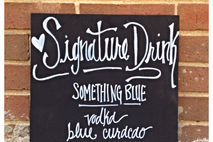 Signature Drink
SOMETHING BLUE
vodka
blue curacao